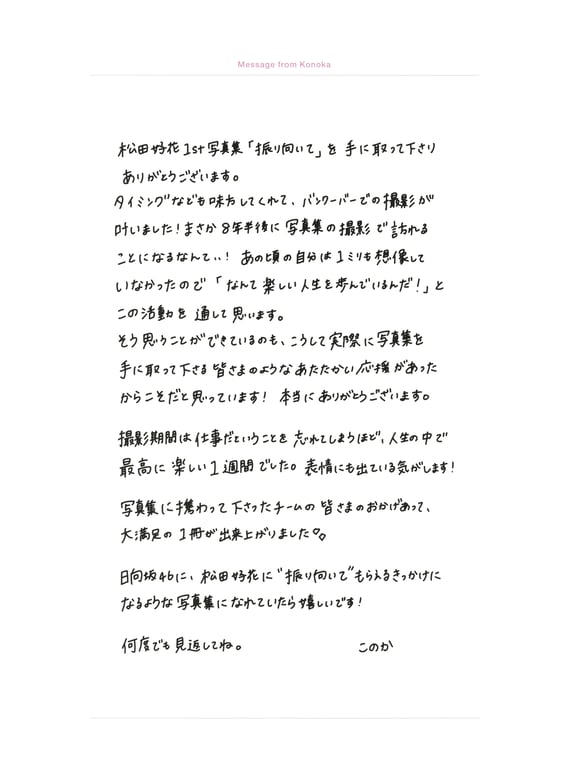 Message from Konoka
松田好花1st写真集「振り向いて」を手に取って下さり
ありがとうございます。
タイミングなども味方してくれて、バンクーバーでの撮影が
叶いました!まさか8年半後に写真集の撮影で訪れる
ことになるなんて…!あの頃の自分は1ミリも想像して
いなかったので「なんて楽しい人生を歩んでいるんだ!」と
この活動を通して思います。
そう思うことができているのも、こうして実際に写真集を
手に取って下さる皆さまのようなあたたかい応援があった
からこそだと思っています!本当にありがとうございます。
撮影期間は仕事だということを忘れてしまうほど、人生の中で
最高に楽しい1週間でした。表情にも出ている気がします!
写真集に携わって下さったチームの皆さまのおかげあって、
大満足の1冊が出来上がりました♡。
日向坂46に、松田好花に"振り向いて"もらえるきっかけに
なるような写真集になれていたら嬉しいです!
何度でも見返してね。
このか